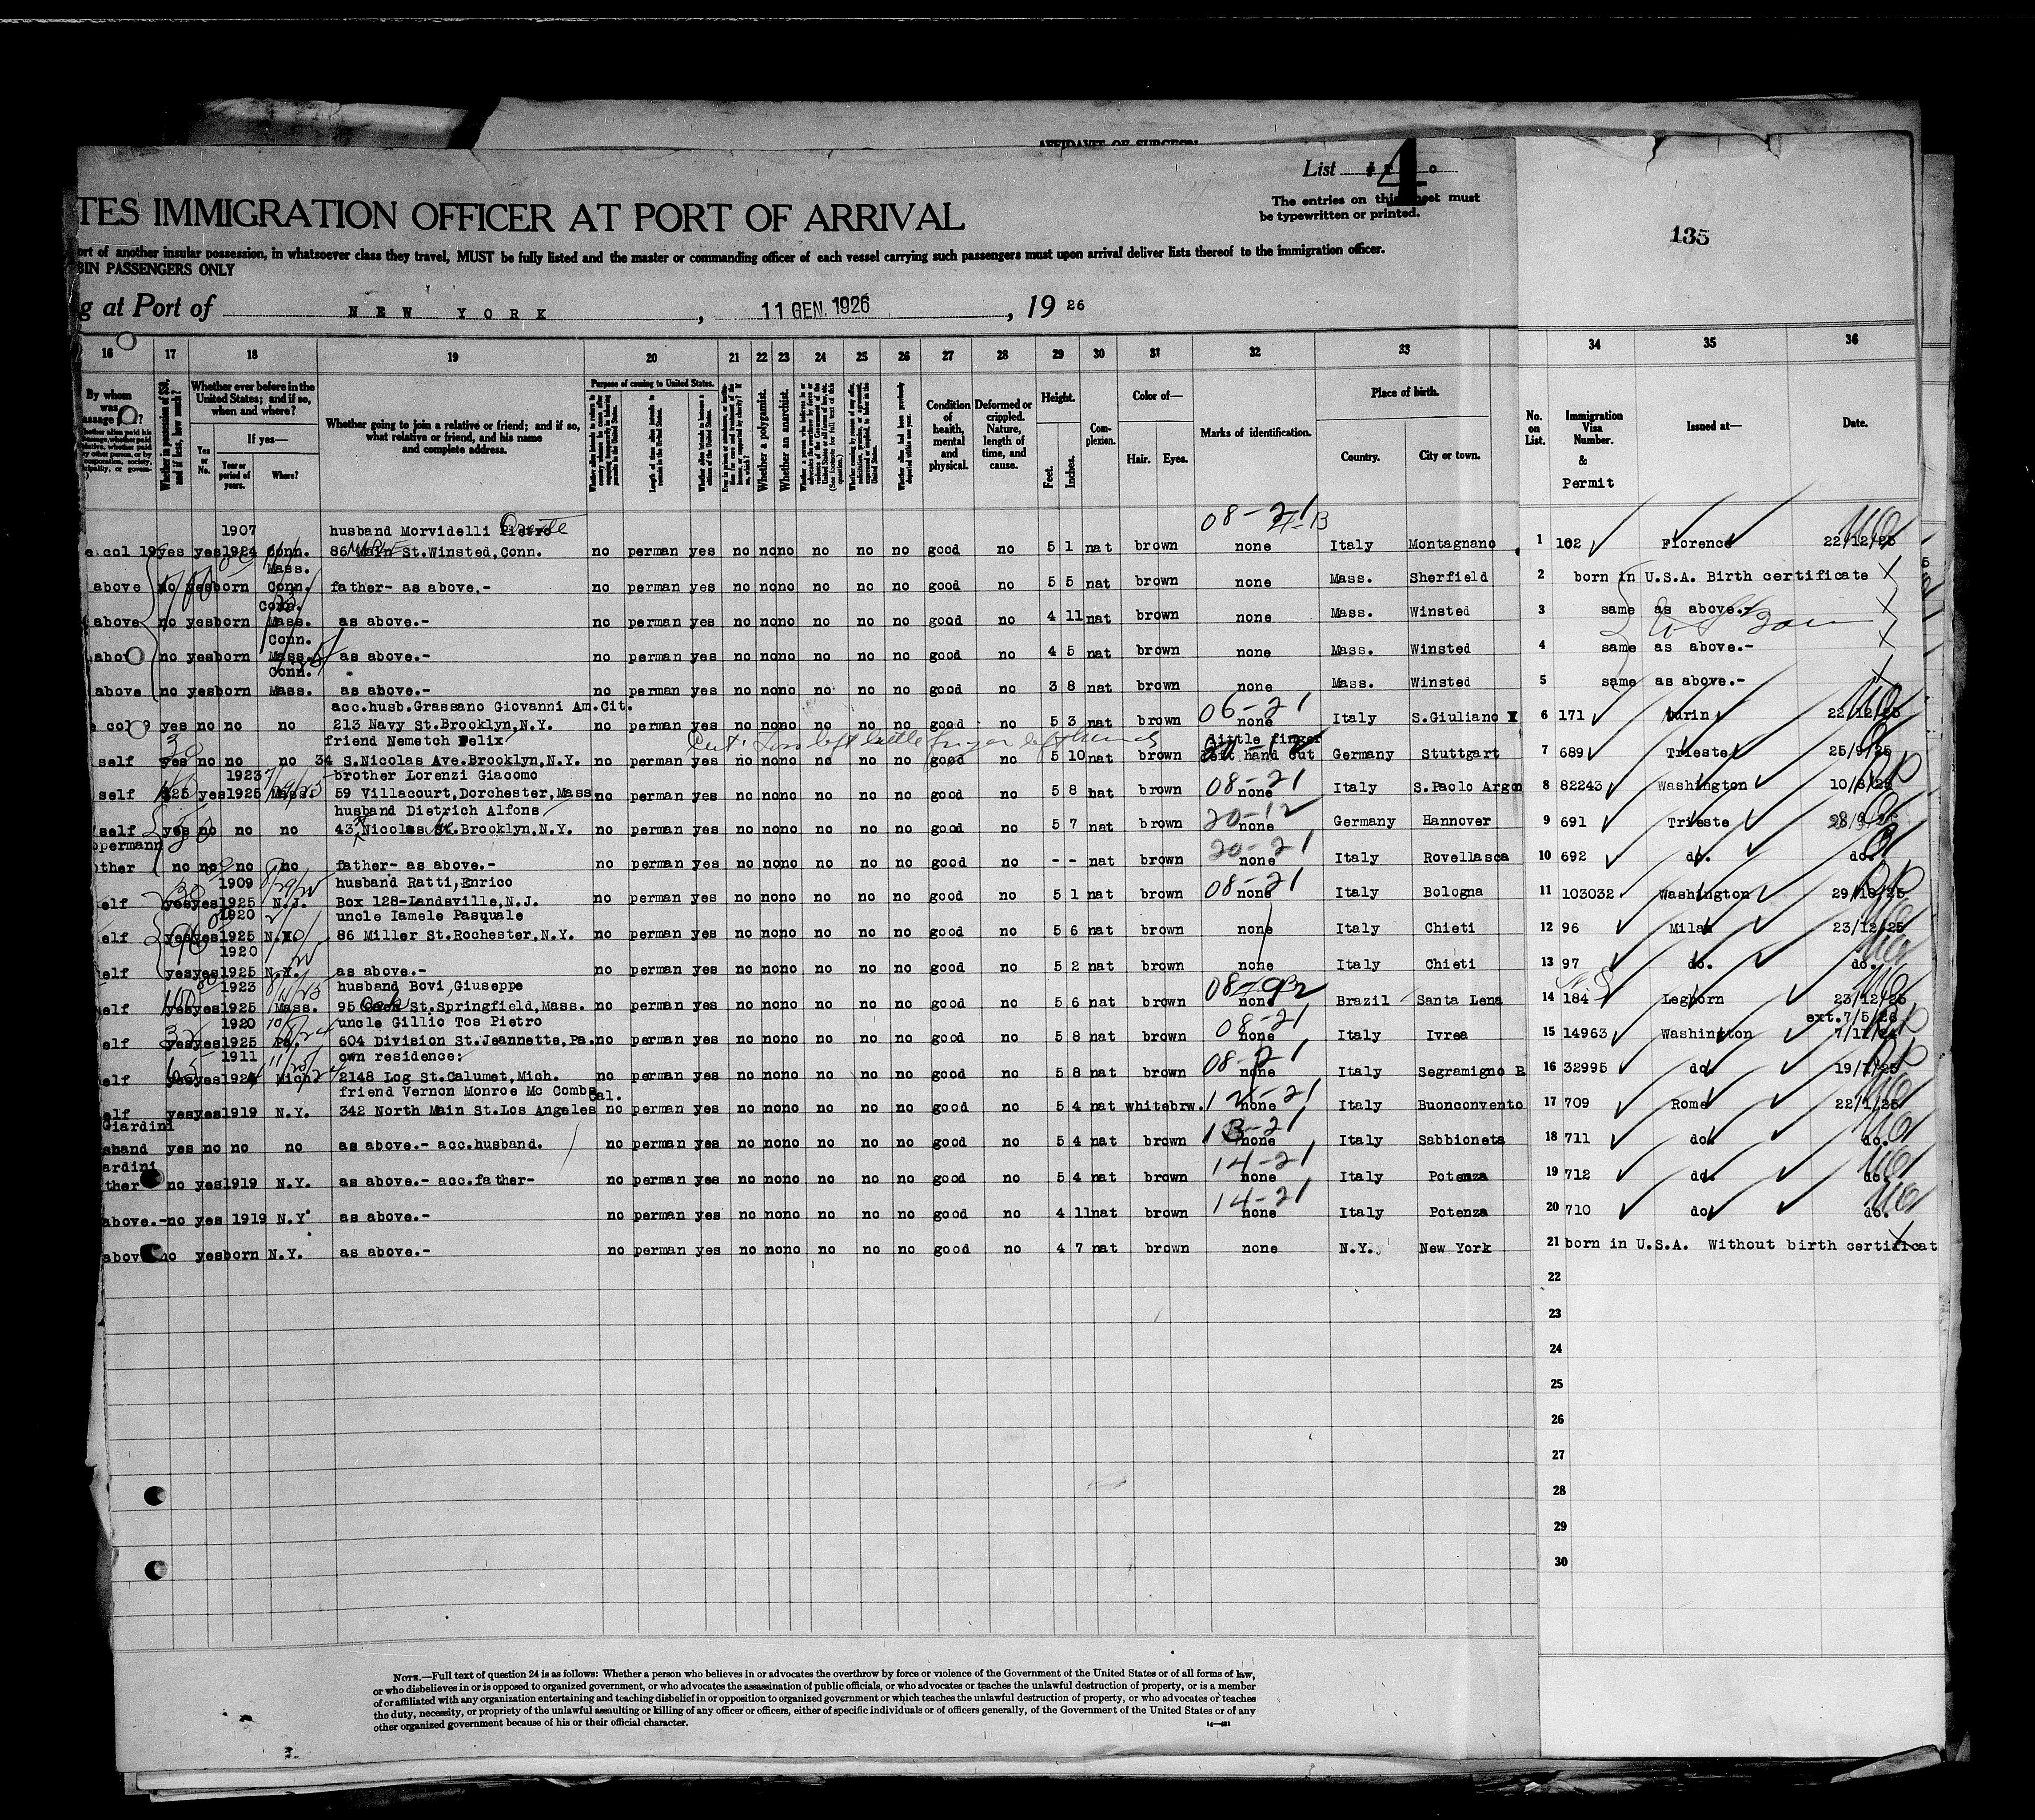 AFFIDAVIT OF SURGEON
List 4
The entries on this sheet must
be typewritten or printed.
TES IMMIGRATION OFFICER AT PORT OF ARRIVAL
135
ort of another insular possession, in whatsoever class they travel, MUST be fully listed and the master or commanding officer of each vessel carrying such passengers must upon arrival deliver lists thereof to the immigration officer.
BIN PASSENGERS ONLY
g at Port of NEW YORK, 11 GEN. 1926, 19 26
16 17 18 19 20 21 22 23 24 25 26 27 28 29 30 31 32 33 34 35 36
By whom was passage
Whether in possession of $50, and if less, how much?
Whether ever before in the United States; and if so, when and where?
Yes or No.
If yes—
Year or period of years.
Where?
Whether going to join a relative or friend; and if so, what relative or friend, and his name and complete address.
Purpose of coming to United States.
Whether a polygamist.
Whether an anarchist.
Condition of health, mental and physical.
Deformed or crippled. Nature, length of time, and cause.
Height.
Feet.
Inches.
Complexion.
Color of—
Hair.
Eyes.
Marks of identification.
Place of birth.
Country.
City or town.
No. on List.
Immigration Visa Number. & Permit
Issued at—
Date.
1907 husband Morvidelli Pietro Oreste 08-21
col 19 yes yes 1924 Conn. 86 Main St.Winsted,Conn. no perman yes no no no no no no good no 5 1 nat brown none Italy Montagnano 1 102 Florence 22/12/25
Mass.
above no yes born Conn. father- as above.- no perman yes no no no no no no good no 5 5 nat brown none Mass. Sherfield 2 born in U.S.A. Birth certificate X
Conn.
above no yes born Mass. as above.- no perman yes no no no no no no good no 4 11 nat brown none Mass. Winsted 3 same as above.- X
Conn.
above no yes born Mass. as above.- no perman yes no no no no no no good no 4 5 nat brown none Mass. Winsted 4 same as above.- X
Conn.
above no yes born Mass. as above.- no perman yes no no no no no no good no 3 8 nat brown none Mass. Winsted 5 same as above.-
acc.husb.Grassano Giovanni Am.Cit. 06-21
col 9 yes no no no 213 Navy St.Brooklyn,N.Y. no perman yes no no no no no no good no 5 3 nat brown none Italy S.Giuliano 6 171 Turin 22/12/25
friend Nemetch Felix little finger
self yes no no no 34 S.Nicolas Ave.Brooklyn,N.Y. no perman yes no no no no no no good no 5 10 nat brown left hand cut Germany Stuttgart 7 689 Trieste 25/9/25
1923 brother Lorenzi Giacomo 08-21
self $25 yes 1925 Mass. 59 Villacourt,Dorchester,Mass no perman yes no no no no no no good no 5 8 nat brown none Italy S.Paolo Argon 8 82243 Washington
husband Dietrich Alfons 20-12
self yes no no no 43 Nicolas St.Brooklyn,N.Y. no perman yes no no no no no no good no 5 7 nat brown none Germany Hannover 9 691 Trieste
20-21
other no no no no father- as above.- no perman yes no no no no no no good no - - nat brown none Italy Rovellasca 10 692 do. do.
1909 husband Ratti,Enrico 08-21
elf yes yes 1925 N.J. Box 128-Landsville,N.J. no perman yes no no no no no no good no 5 1 nat brown none Italy Bologna 11 103032 Washington 29/10/25
1920 uncle Iamele Pasquale
elf yes yes 1925 N.Y. 86 Miller St.Rochester,N.Y. no perman yes no no no no no no good no 5 6 nat brown none Italy Chieti 12 96 Milan 23/12/25
1920
elf yes yes 1925 N.Y. as above.- no perman yes no no no no no no good no 5 2 nat brown none Italy Chieti 13 97 do. do.
1923 husband Bovi,Giuseppe
elf yes yes 1925 Mass. 95 Oak St.Springfield,Mass. no perman yes no no no no no no good no 5 6 nat brown none Brazil Santa Lena 14 184 Leghorn 23/12/25
1920 uncle Gillio Tos Pietro 08-21 ext.7/5/26
elf yes yes 1925 Pa. 604 Division St.Jeannette,Pa. no perman yes no no no no no no good no 5 8 nat brown none Italy Ivrea 15 14963 Washington
1911 own residence: 08-21
elf yes yes 1924 Mich. 2148 Log St.Calumet,Mich. no perman yes no no no no no no good no 5 8 nat brown none Italy Segramigno 16 32995 do.
friend Vernon Monroe Mc Combs Cal.
elf yes yes 1919 N.Y. 342 North Main St.Los Angeles no perman yes no no no no no no good no 5 4 nat white brw. none Italy Buonconvento 17 709 Rome
Giardini
sband yes no no no as above.- acc.husband. no perman yes no no no no no no good no 5 4 nat brown none Italy Sabbioneta 18 711 do. do.
ardini 14-21
ther no yes 1919 N.Y. as above.- acc.father- no perman yes no no no no no no good no 5 4 nat brown none Italy Potenza 19 712 do. do.
14-21
above.- no yes 1919 N.Y. as above.- no perman yes no no no no no no good no 4 11 nat brown none Italy Potenza 20 710 do. do.
above no yes born N.Y. as above.- no perman yes no no no no no no good no 4 7 nat brown none N.Y. New York 21 born in U.S.A. Without birth certificat
22
23
24
25
26
27
28
29
30
NOTE.—Full text of question 24 is as follows: Whether a person who believes in or advocates the overthrow by force or violence of the Government of the United States or of all forms of law,
or who disbelieves in or is opposed to organized government, or who advocates the assassination of public officials, or who advocates or teaches the unlawful destruction of property, or is a member
of or affiliated with any organization entertaining and teaching disbelief in or opposition to organized government or which teaches the unlawful destruction of property, or who advocates or teaches
the duty, necessity, or propriety of the unlawful assaulting or killing of any officer or officers, either of specific individuals or of officers generally, of the Government of the United States or of any
other organized government because of his or their official character.